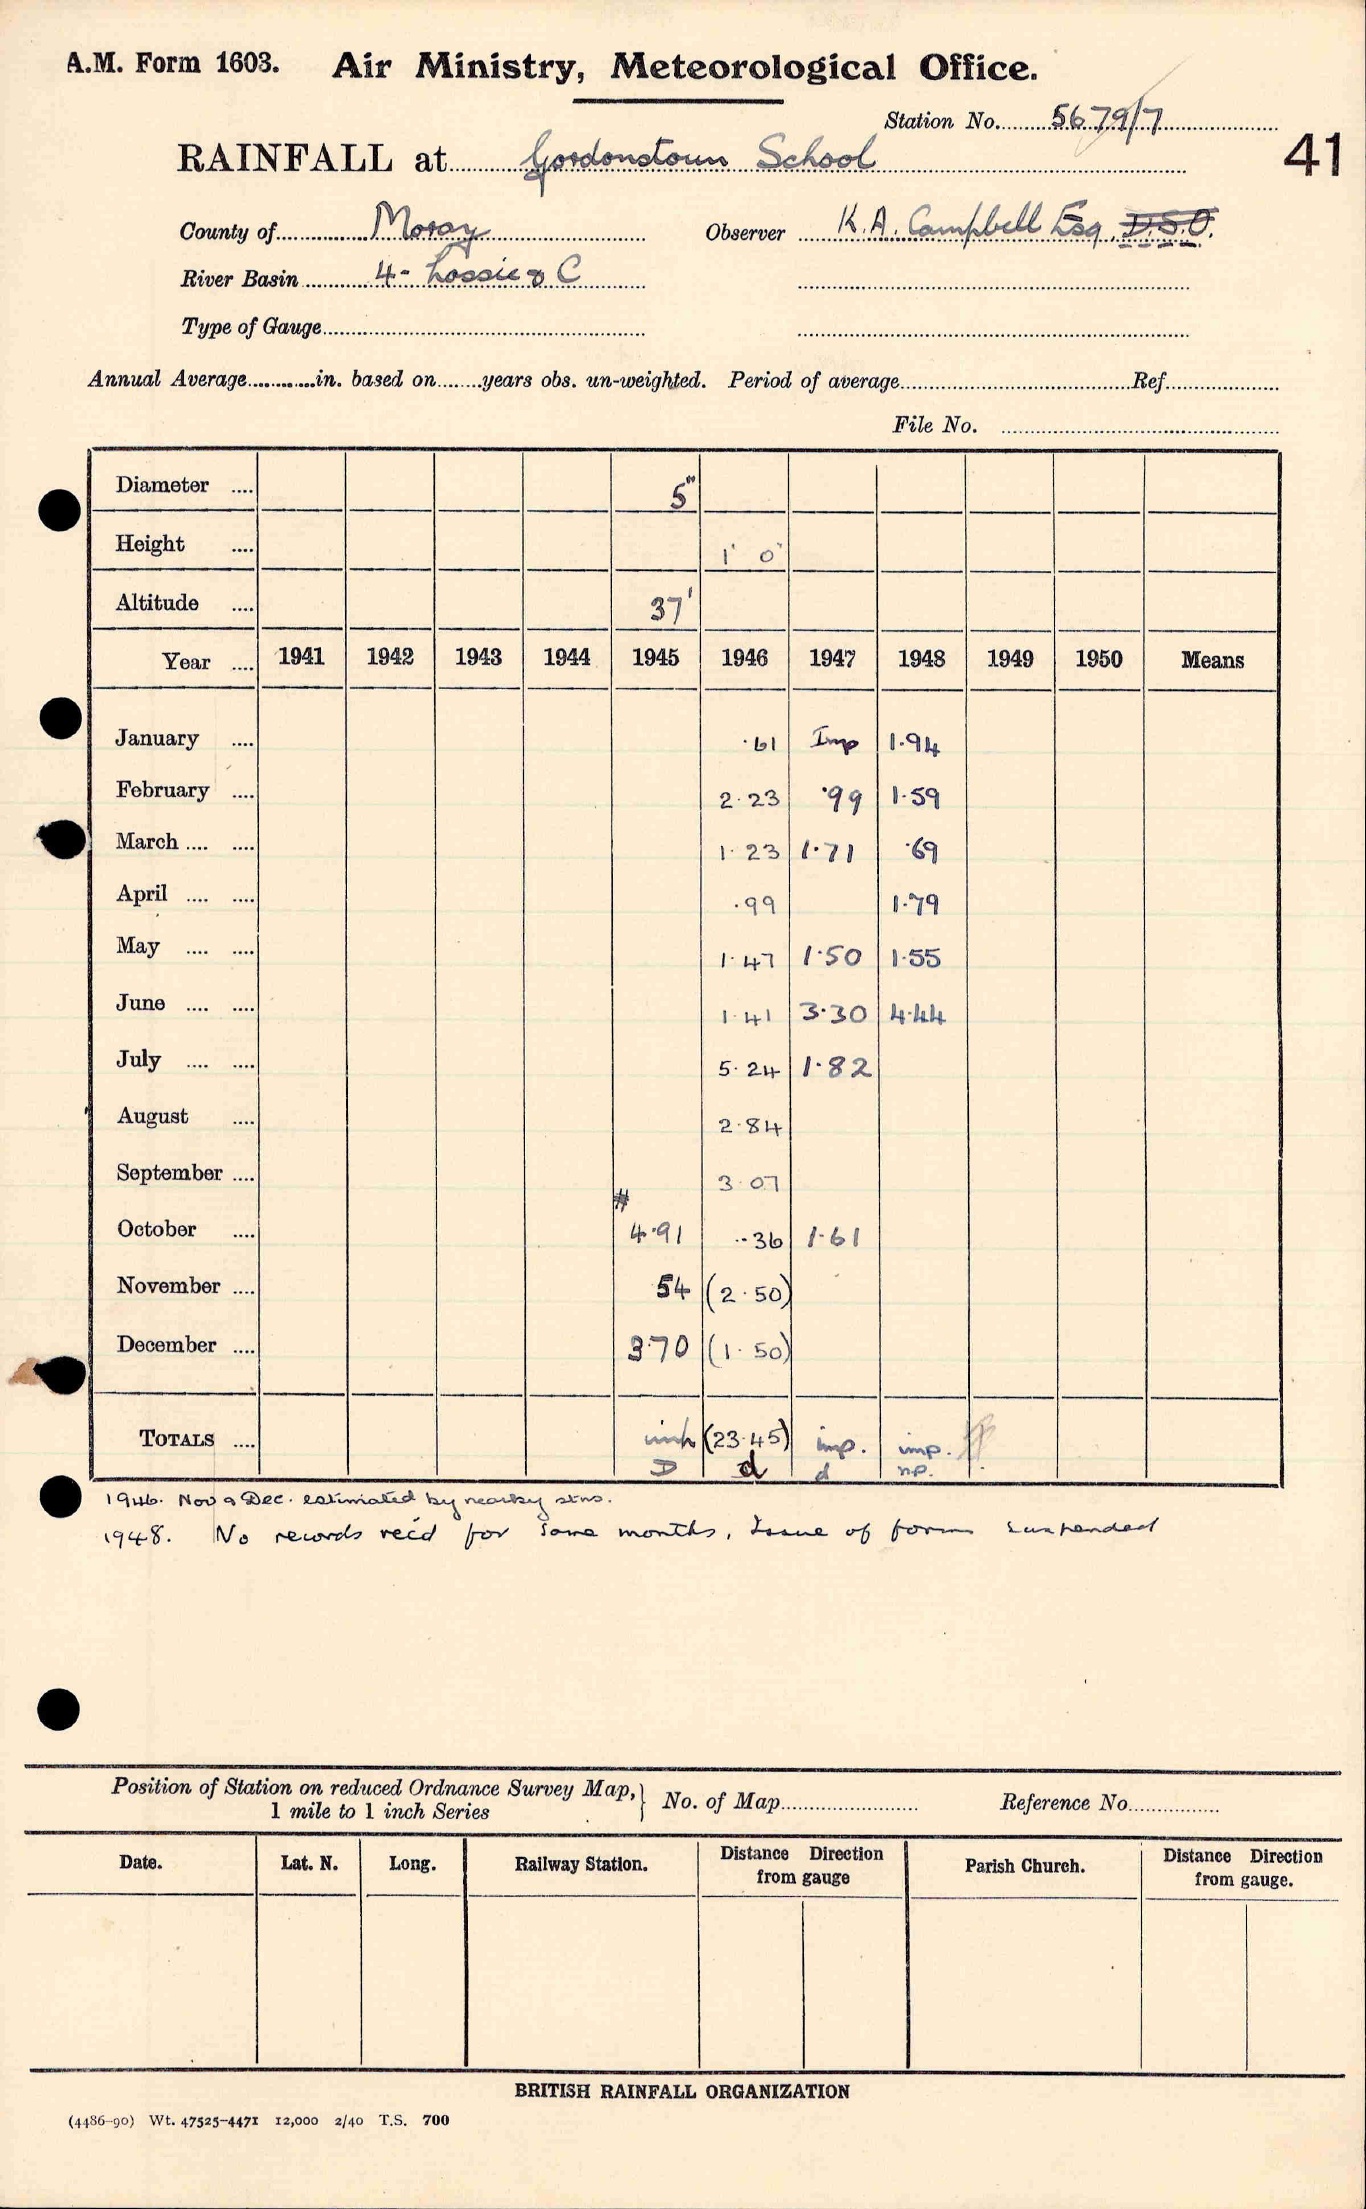 A.M. Form 1603. Air Ministry, Meteorological Office.
Station No. 5679/7
41
RAINFALL at Gordonstoun School
County of Moray Observer K.A. Campbell Esq. D.S.O.
River Basin 4 - Lossie & C
Type of Gauge
Annual Average in. based on years obs. un-weighted. Period of average Ref.
File No.
Diameter 5"
Height 1' 0"
Altitude 37'
Year 1941 1942 1943 1944 1945 1946 1947 1948 1949 1950 Means
January .61 Imp 1.94
February 2.23 .99 1.59
March 1.23 1.71 .69
April .99 1.79
May 1.47 1.50 1.55
June 1.41 3.30 4.44
July 5.24 1.82
August 2.84
September 3.07
#
October 4.91 .36 1.61
November 54 (2.50)
December 3.70 (1.50)
TOTALS (23.45) imp. imp.
D d d n.p.
1946. Nov & Dec. estimated by nearby stns.
1948. No records rec'd for some months, Issue of forms suspended
Position of Station on reduced Ordnance Survey Map, } No. of Map Reference No.
1 mile to 1 inch Series
Date. Lat. N. Long. Railway Station. Distance Direction from gauge Parish Church. Distance Direction from gauge.
BRITISH RAINFALL ORGANIZATION
(4486-90) Wt. 47525-4471 12,000 2/40 T.S. 700